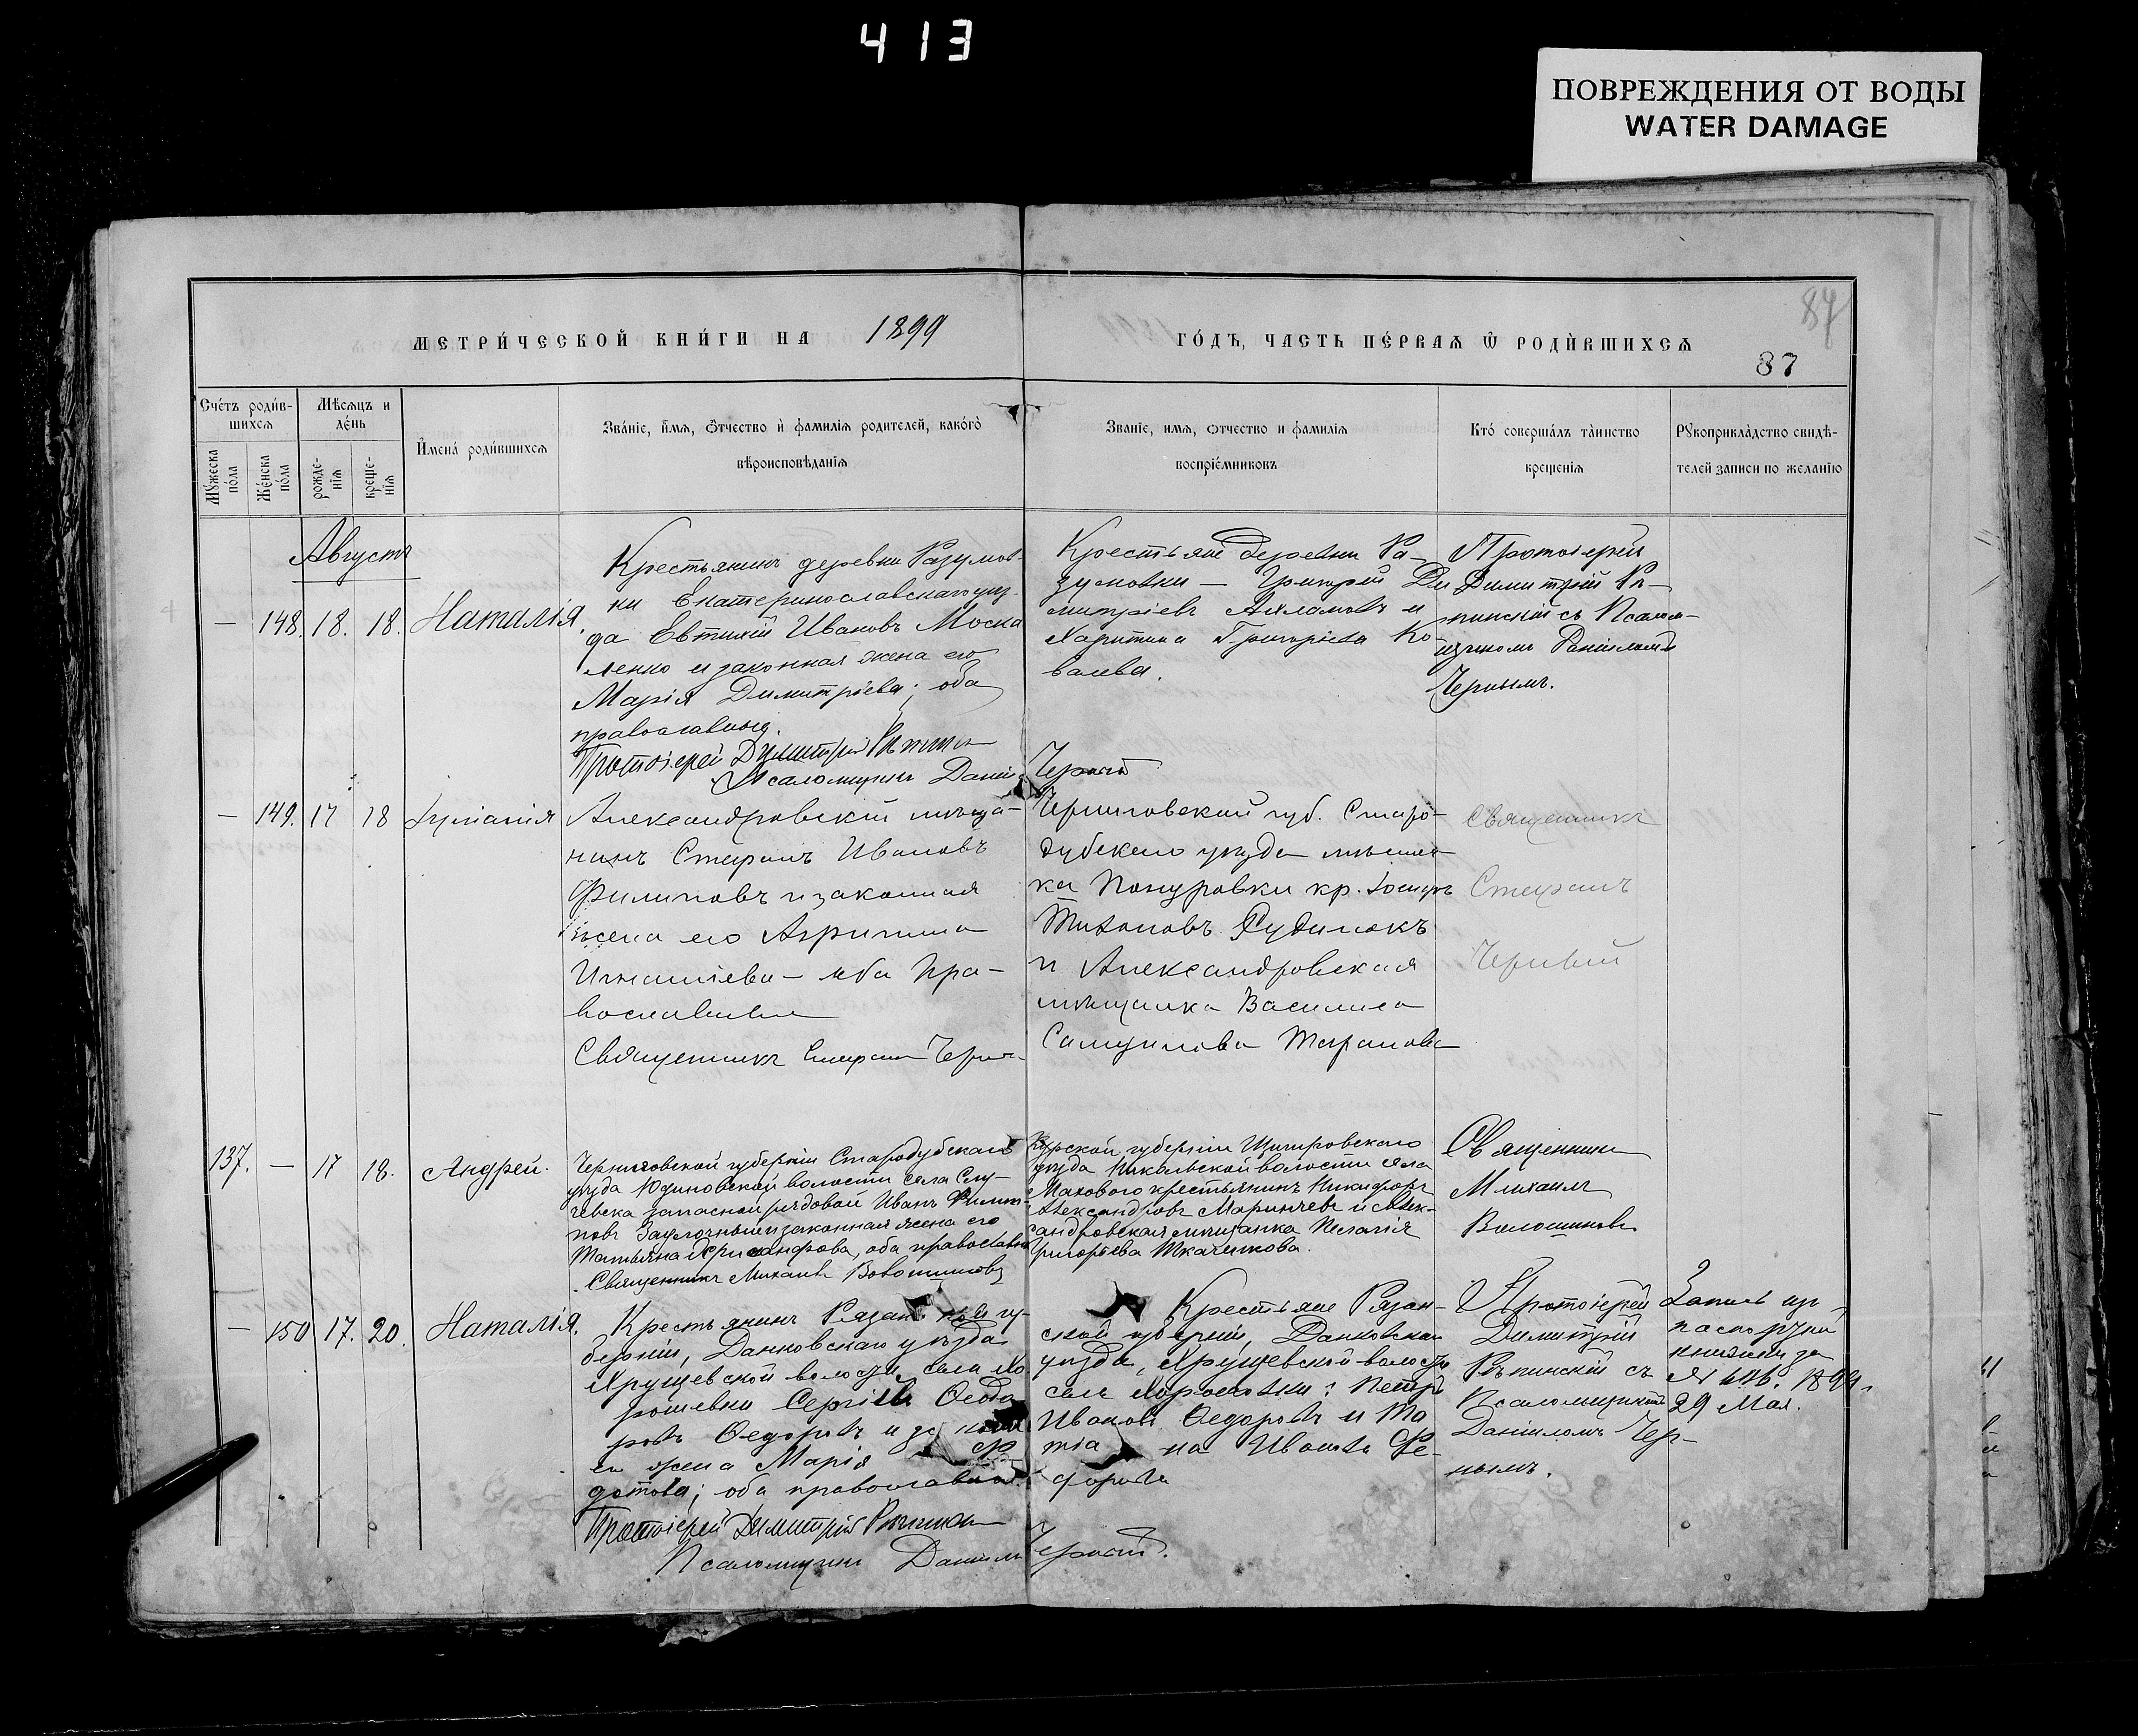 413
ПОВРЕЖДЕНИЯ ОТ ВОДЫ
WATER DAMAGE
МЕТРИ́ЧЕСКОЙ КНИ́ГИ НА 1899
ГО́ДЪ, ЧАСТЬ ПЕ́РВАѦ Ѿ РОДИ́ВШИХСѦ
87
87
Сче́тъ роди́в-
шихсѧ
Мѣсѧцъ и
де́нь
Мꙋ́жеска
по́ла
Же́нска
по́ла
рожде-
нїѧ
креще-
нїѧ
И́мена́ роди́вшихсѧ
Зва́нїе, и́мѧ, ѻ́тчество и҆ фамилїѧ родителей, како́гѡ
вѣроисповѣданїѧ
Званїе, имѧ, ѻтчество и фамилїѧ
воспрїе́мниковъ
Кто́ соверша́лъ та́инство
крещенїѧ
Рꙋкоприкла́дство свидѣ́-
телей записи по желанїю
Августъ
— 148. 18. 18. Наталія.
Крестьянинъ деревни Разумов-
ки Екатеринославскаго уѣз-
да Евтихій Ивановъ Моска
ленко и законная жена его
Марія Димитріева; оба
православные.
Протоіерей Димитрій Рѣпинскій
Псаломщикъ Даніилъ Черный
Крестьяне деревни Ра-
зумовки — Григорій Ди
митріевъ и
Харитина Григорьева Ко-
валева.
Протоіерей
Димитрій Рѣ-
пинскій съ Псалом-
щикомъ Даніиломъ
Чернымъ.
— 149. 17 18 Іуліанія
Александровскій мѣща-
нинъ Стефанъ Ивановъ
Филиповъ и законная
жена его Агрипина
Игнатіева — оба пра-
вославные
Священникъ Стефанъ Черный
Черниговской губ. Старо-
дубскаго уѣзда мѣстеч-
ка Понуровки кр. Іосифъ
Тихоновъ Рудинокъ
и Александровская
мѣщанка Василиса
Самуилова Таранова
Священникъ
Стефанъ
Черный
137. — 17 18. Андрей.
Черниговской губерніи Стародубскаго
уѣзда Юдиновской волости села Слу-
чевска запасной рядовой Иванъ Филип-
повъ и законная жена его
Татьяна Хрисанфова, оба православн.
Священникъ Михаилъ Волошиновъ
Курской губерніи Щигровскаго
уѣзда Никольской волости села
Маховаго крестьянинъ Никифоръ
Александровъ Маринчевъ и Алек-
сандровская мѣщанка Пелагія
Григорьева Ткаченкова.
Священникъ
Михаилъ
Волошиновъ
— 150 17. 20. Наталія.
Крестьянинъ Рязанской гу-
берніи, Данковскаго уѣзда
Хрущевской волости, села Хо
рошевки Сергій Ѳеодо
ровъ Ѳедоровъ и законная
его жена Марія Ѳе-
дотова; оба православные.
Протоіерей Димитрій Рѣпинскій
Псаломщикъ Даніилъ Черный.
Крестьяне Рязан-
ской губерніи, Данковскаго
уѣзда, Хрущевской волости
села Хорошовки: Петръ
Ивановъ Ѳедоровъ и Та
тіа на Иванова Ѳе-
дорова
Протоіерей
Димитрій
Рѣпинскій съ
Псаломщикомъ
Даніиломъ Чер-
нымъ.
Запись изъ
паспортной
книжки за
1899.
29 Мая.